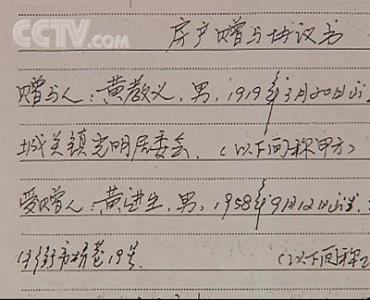 CCTV.com
房产赠与协议书
赠与人：黄教义，男，1919年3月20日出
城关镇 明居委会。（以下简称甲方）
受赠人：黄进生，男，1958年9月12日出生，
街市桥巷19号. （以下简称乙